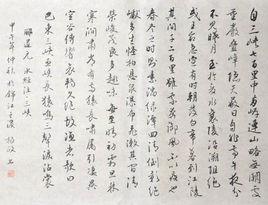 自三峡七百里中兩岸連山略無闕處
重巖疊嶂隐天蔽日自非亭午夜分
不見曦月至於夏水襄陵沿溯阻绝
或王命急宣有時朝發白帝暮到江陵
其间千二百里雖乘奔御風不以疾也
春冬之時則素湍绿潭回清倒影绝
巘多生怪柏懸泉瀑布飛漱其間清
榮峻茂良多趣味每至晴初霜旦林
寒涧肃常有高猿長嘯属引凄異
空谷傳響哀轉久绝故漁者歌曰
巴東三峡巫峡長猿鳴三聲淚沾裳
酈道元 水經注 三峡
甲午年仲秋於錦江之濱